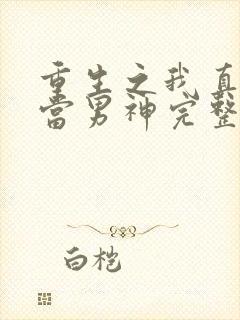 重生之我真
当男神完整
白桤